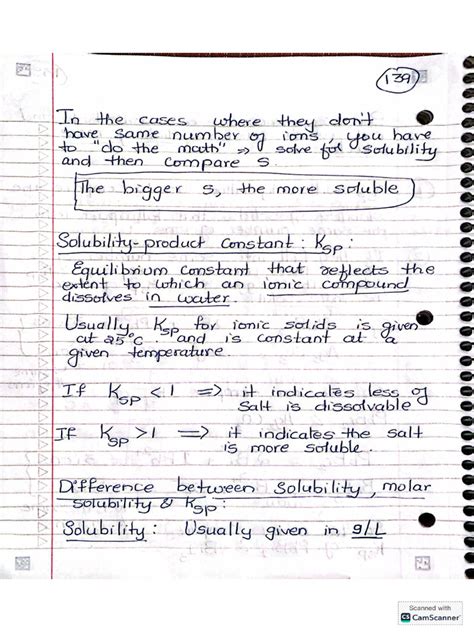 139
In the cases where they don't
have same number of ions, you have
to "do the math" => solve for solubility
and then compare s.
The bigger s, the more soluble
Solubility-product Constant : Ksp
Equilibrium constant that reflects the
extent to which an ionic compound
dissolves in water.
Usually Ksp for ionic solids is given
at 25°C and is constant at a
given temperature.
If Ksp < 1 => it indicates less of
salt is dissolvable
If Ksp > 1 => it indicates the salt
is more soluble.
Difference between Solubility, molar
solubility & Ksp:
Solubility : Usually given in g/L
Scanned with
CS CamScanner